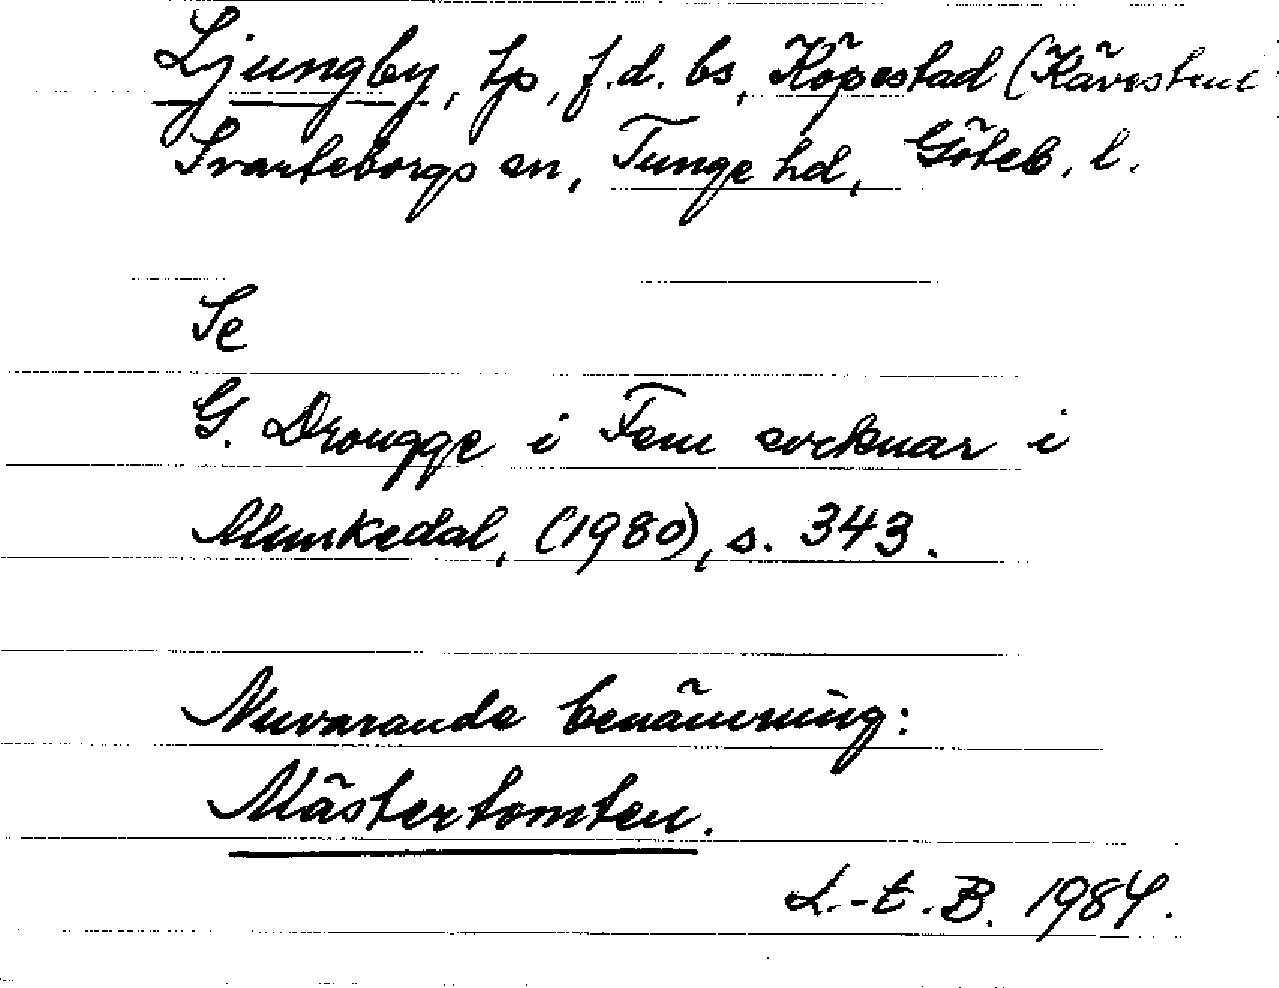 Ljungby, tp, f.d. bs, Köpestad (Kävestene
Svarteborgs sn, Tunge hd, Göteb. l.
Se
G. Drougge i Fem socknar i
Munkedal, (1980), s. 343.
Nuvarande benämning:
Mästertomten.
L.-E. B. 1984.